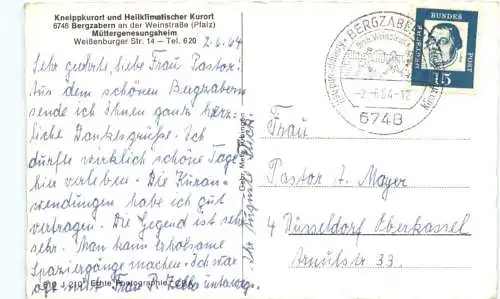 Kneippkurort und Heilklimatischer Kurort
6748 Bergzabern an der Weinstraße (Pfalz)
Müttergenesungsheim
Weißenburger Str. 14 — Tel. 620
2.6.64
Sehr geehrte, liebe Frau Pastor!
Aus dem schönen Bergzabern
sende ich Ihnen ganz herz-
liche Dankesgrüße. Ich
durfte wirklich schöne Tage
hier verleben. Die Kuran-
wendungen habe ich gut
vertragen. Die Gegend ist sehr
sehr. Man kann erholsame
Spaziergänge machen. Ich
mit Frau
Echte Photographie
Gebr. Metz, Tübingen
BERGZABERN
-2.6.64-12
6748
DEUTSCHE BUNDESPOST
15
Frau
Pastor J. Mayer
4 Düsseldorf Oberkassel
Arnulfstr. 33.